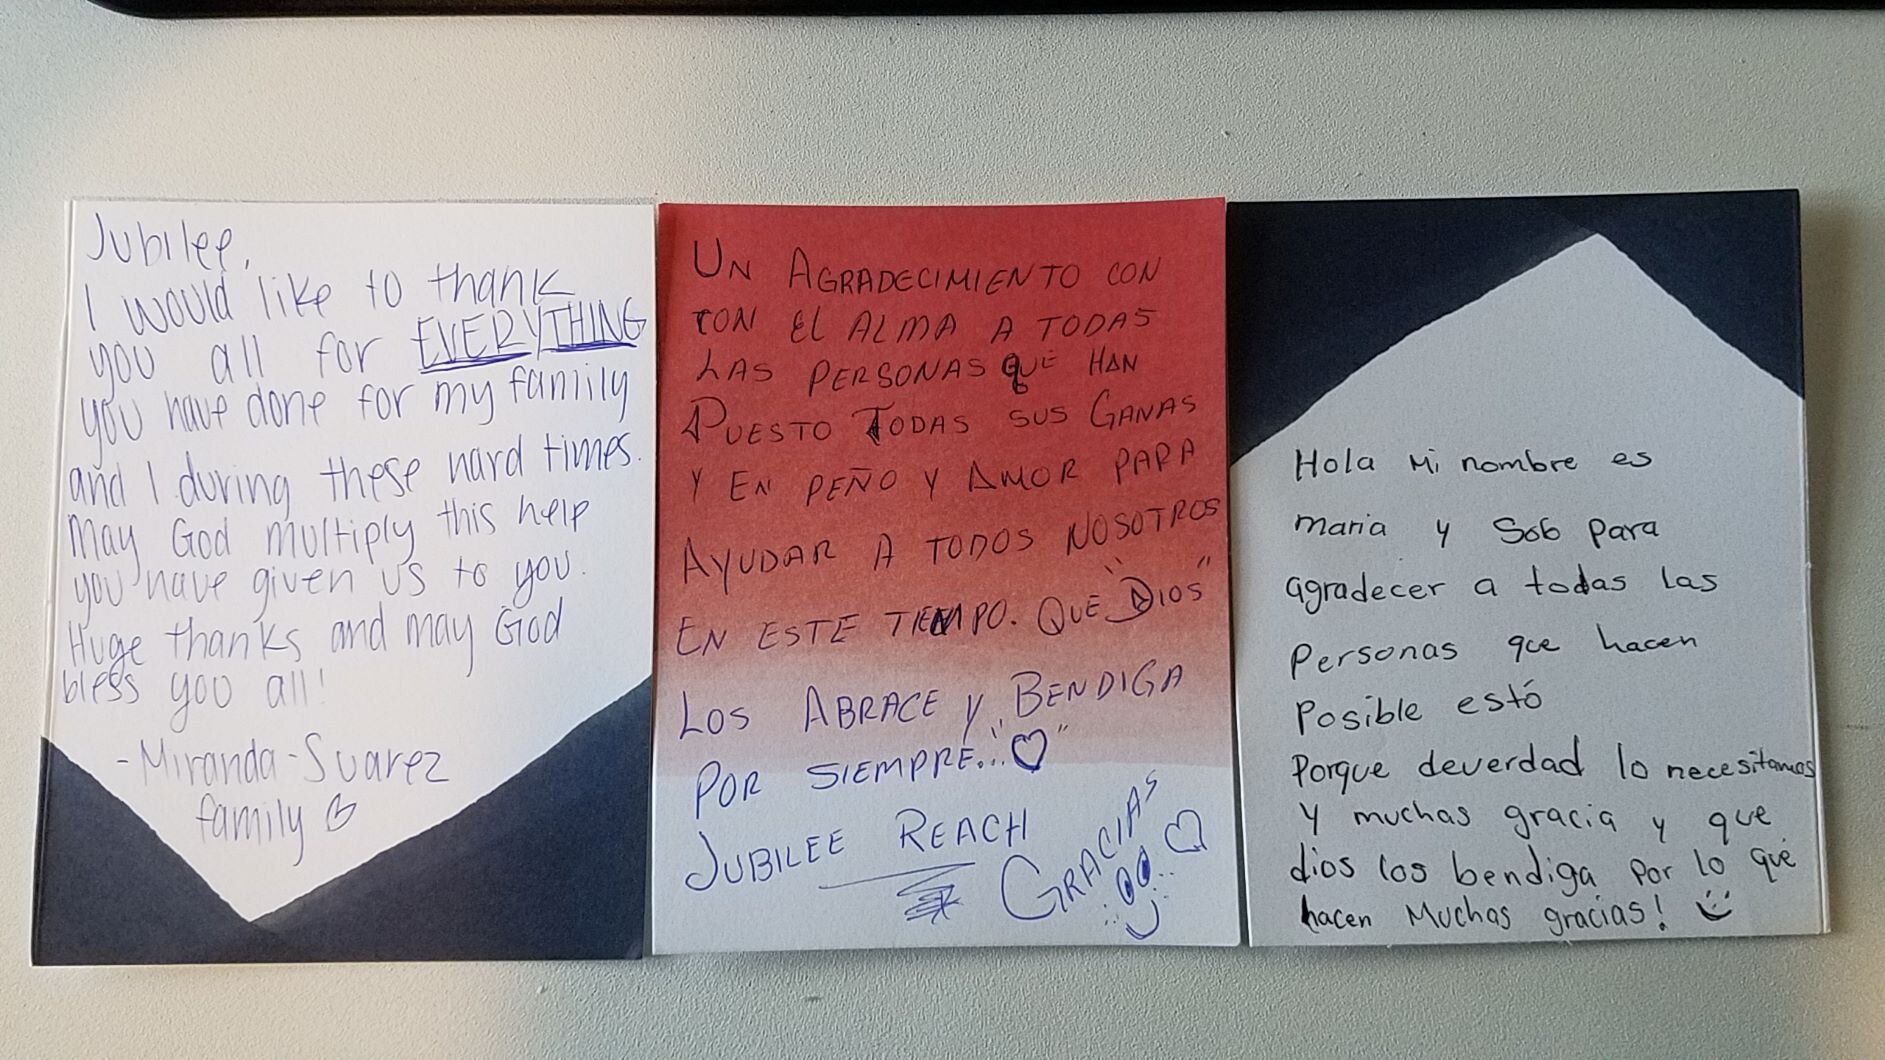 Jubilee,
I would like to thank
you all for EVERYTHING
you have done for my family
and I during these hard times.
May God multiply this help
you have given us to you.
Huge thanks and may God
bless you all!
-Miranda-Suarez
family
UN AGRADECIMIENTO CON
CON EL ALMA A TODAS
LAS PERSONAS QUE HAN
PUESTO TODAS SUS GANAS
Y EN PEÑO Y AMOR PARA
AYUDAR A TODOS NOSOTROS
EN ESTE TIEMPO. QUE "DIOS"
LOS ABRACE Y BENDIGA
POR SIEMPRE..."♡"
JUBILEE REACH
GRACIAS
Hola Mi nombre es
maria y Sob para
agradecer a todas las
Personas que hacen
Posible estó
Porque deverdad lo necesitamos
Y muchas gracia y que
dios los bendiga por lo que
hacen Muchas gracias!